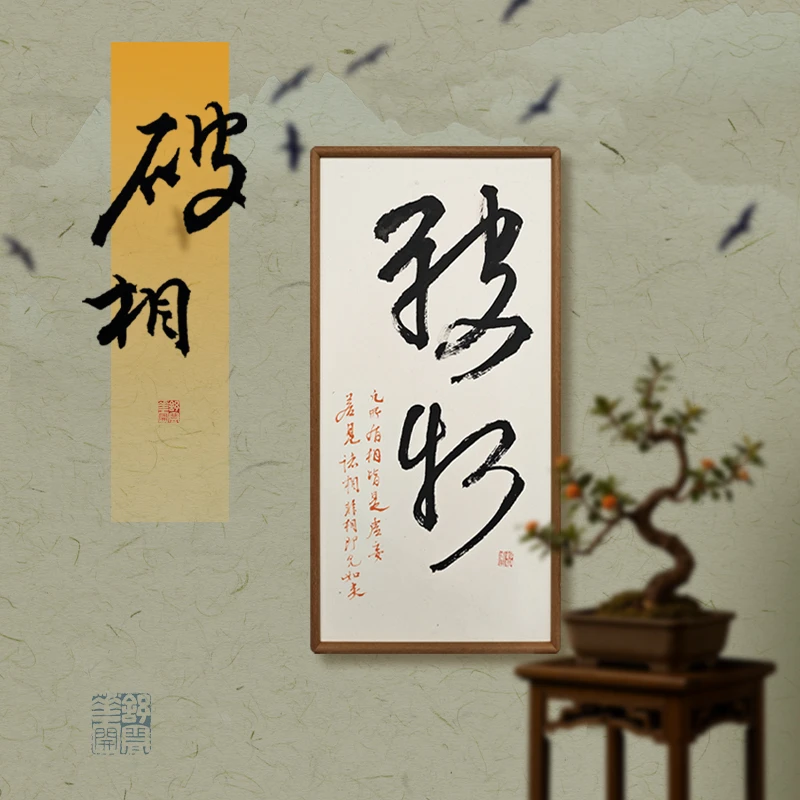 破
相
破相
凡所有相皆是虚妄
若见诸相非相即见如来